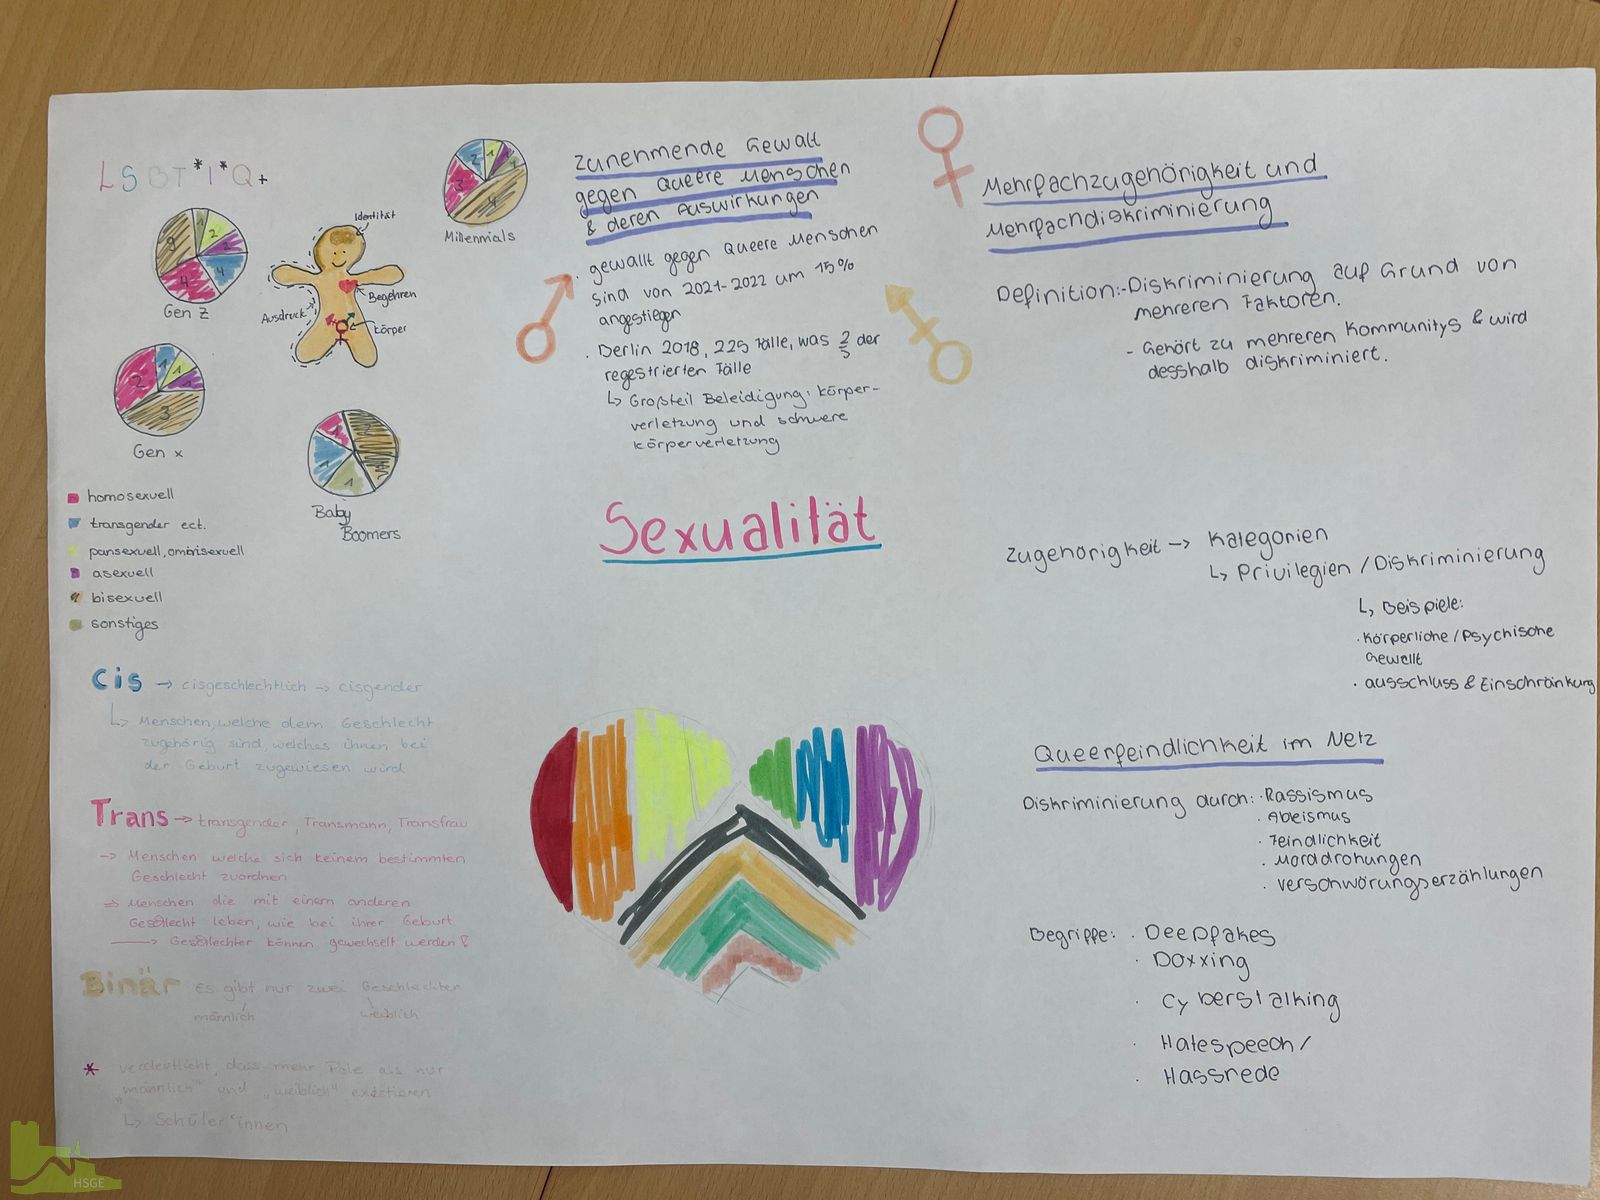 LSBT*I*Q+
9
1
2
2
4
4
Gen Z
Identität
Begehren
Ausdruck
Körper
3
2
1
1
1
4
Millennials
2
1
1
1
3
Gen x
1
2
1
1
Baby
Boomers
homosexuell
transgender ect.
pansexuell, omnisexuell
asexuell
bisexuell
sonstiges
Cis → cisgeschlechtlich → cisgender
↳ Menschen, welche dem Geschlecht
zugehörig sind, welches ihnen bei
der Geburt zugewiesen wird
Trans → transgender, Transmann, Transfrau
→ Menschen welche sich keinem bestimmten
Geschlecht zuordnen
⇒ Menschen die mit einem anderen
Geschlecht leben, wie bei ihrer Geburt
→ Geschlechter können gewechselt werden!
Binär es gibt nur zwei Geschlechter
männlich weiblich
* verdeutlicht, dass mehr Pole als nur
„männlich" und „weiblich" existieren
↳ Schüler*innen
Zunehmende Gewalt
gegen Queere Menschen
& deren Auswirkungen
· gewallt gegen Queere Menschen
sind von 2021-2022 um 15%
angestiegen
· Berlin 2018, 225 Fälle, was 2/3 der
regestrierten Fälle
↳ Großteil Beleidigung, Körper-
verletzung und schwere
Körperverletzung
Sexualität
Mehrfachzugehörigkeit und
Mehrfachdiskriminierung
Definition:- Diskriminierung auf Grund von
mehreren Faktoren.
- Gehört zu mehreren Kommunitys & wird
desshalb diskriminiert.
Zugehörigkeit → Kategorien
↳ Privilegien / Diskriminierung
↳ Beispiele:
· Körperliche / Psychische
Gewellt
· ausschluss & Einschränkung
Queerfeindlichkeit im Netz
Diskriminierung durch: · Rassismus
· Ableismus
· Feindlichkeit
· Morddrohungen
· Verschwörungserzählungen
Begriffe: · Deepfakes
· Doxxing
· Cyberstalking
· Hatespeech /
· Hassrede
HSGE